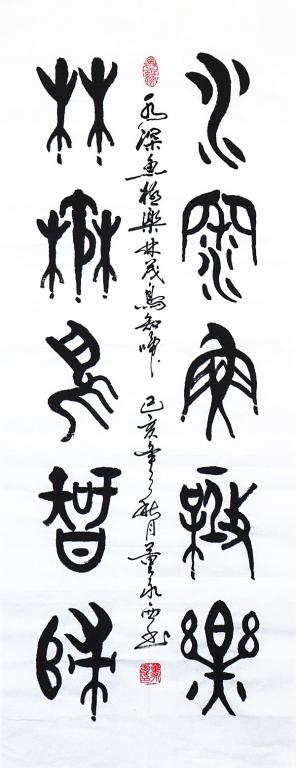 水深魚極樂
林茂鳥知歸
水深魚極樂林茂鳥知歸 己亥年秋月董永西书